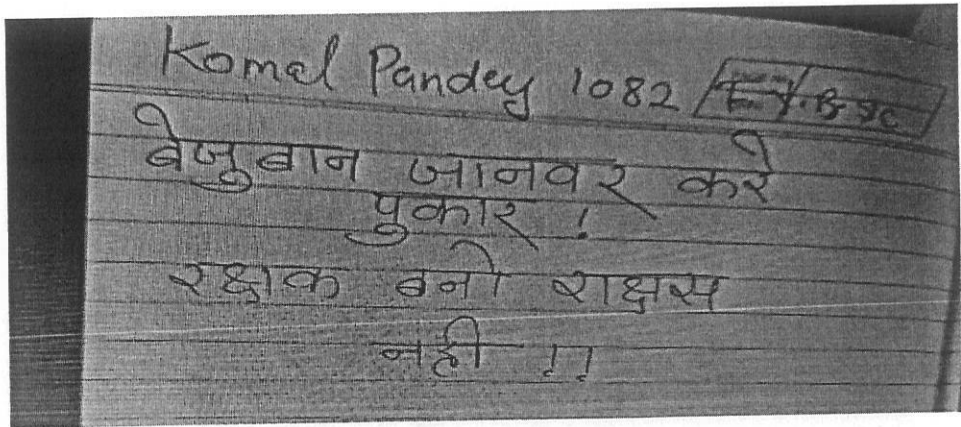 Komal Pandey 1082 F.Y.B.Sc
बेजुबान जानवर करे
पुकार !
रक्षक बनो राक्षस
नही !!